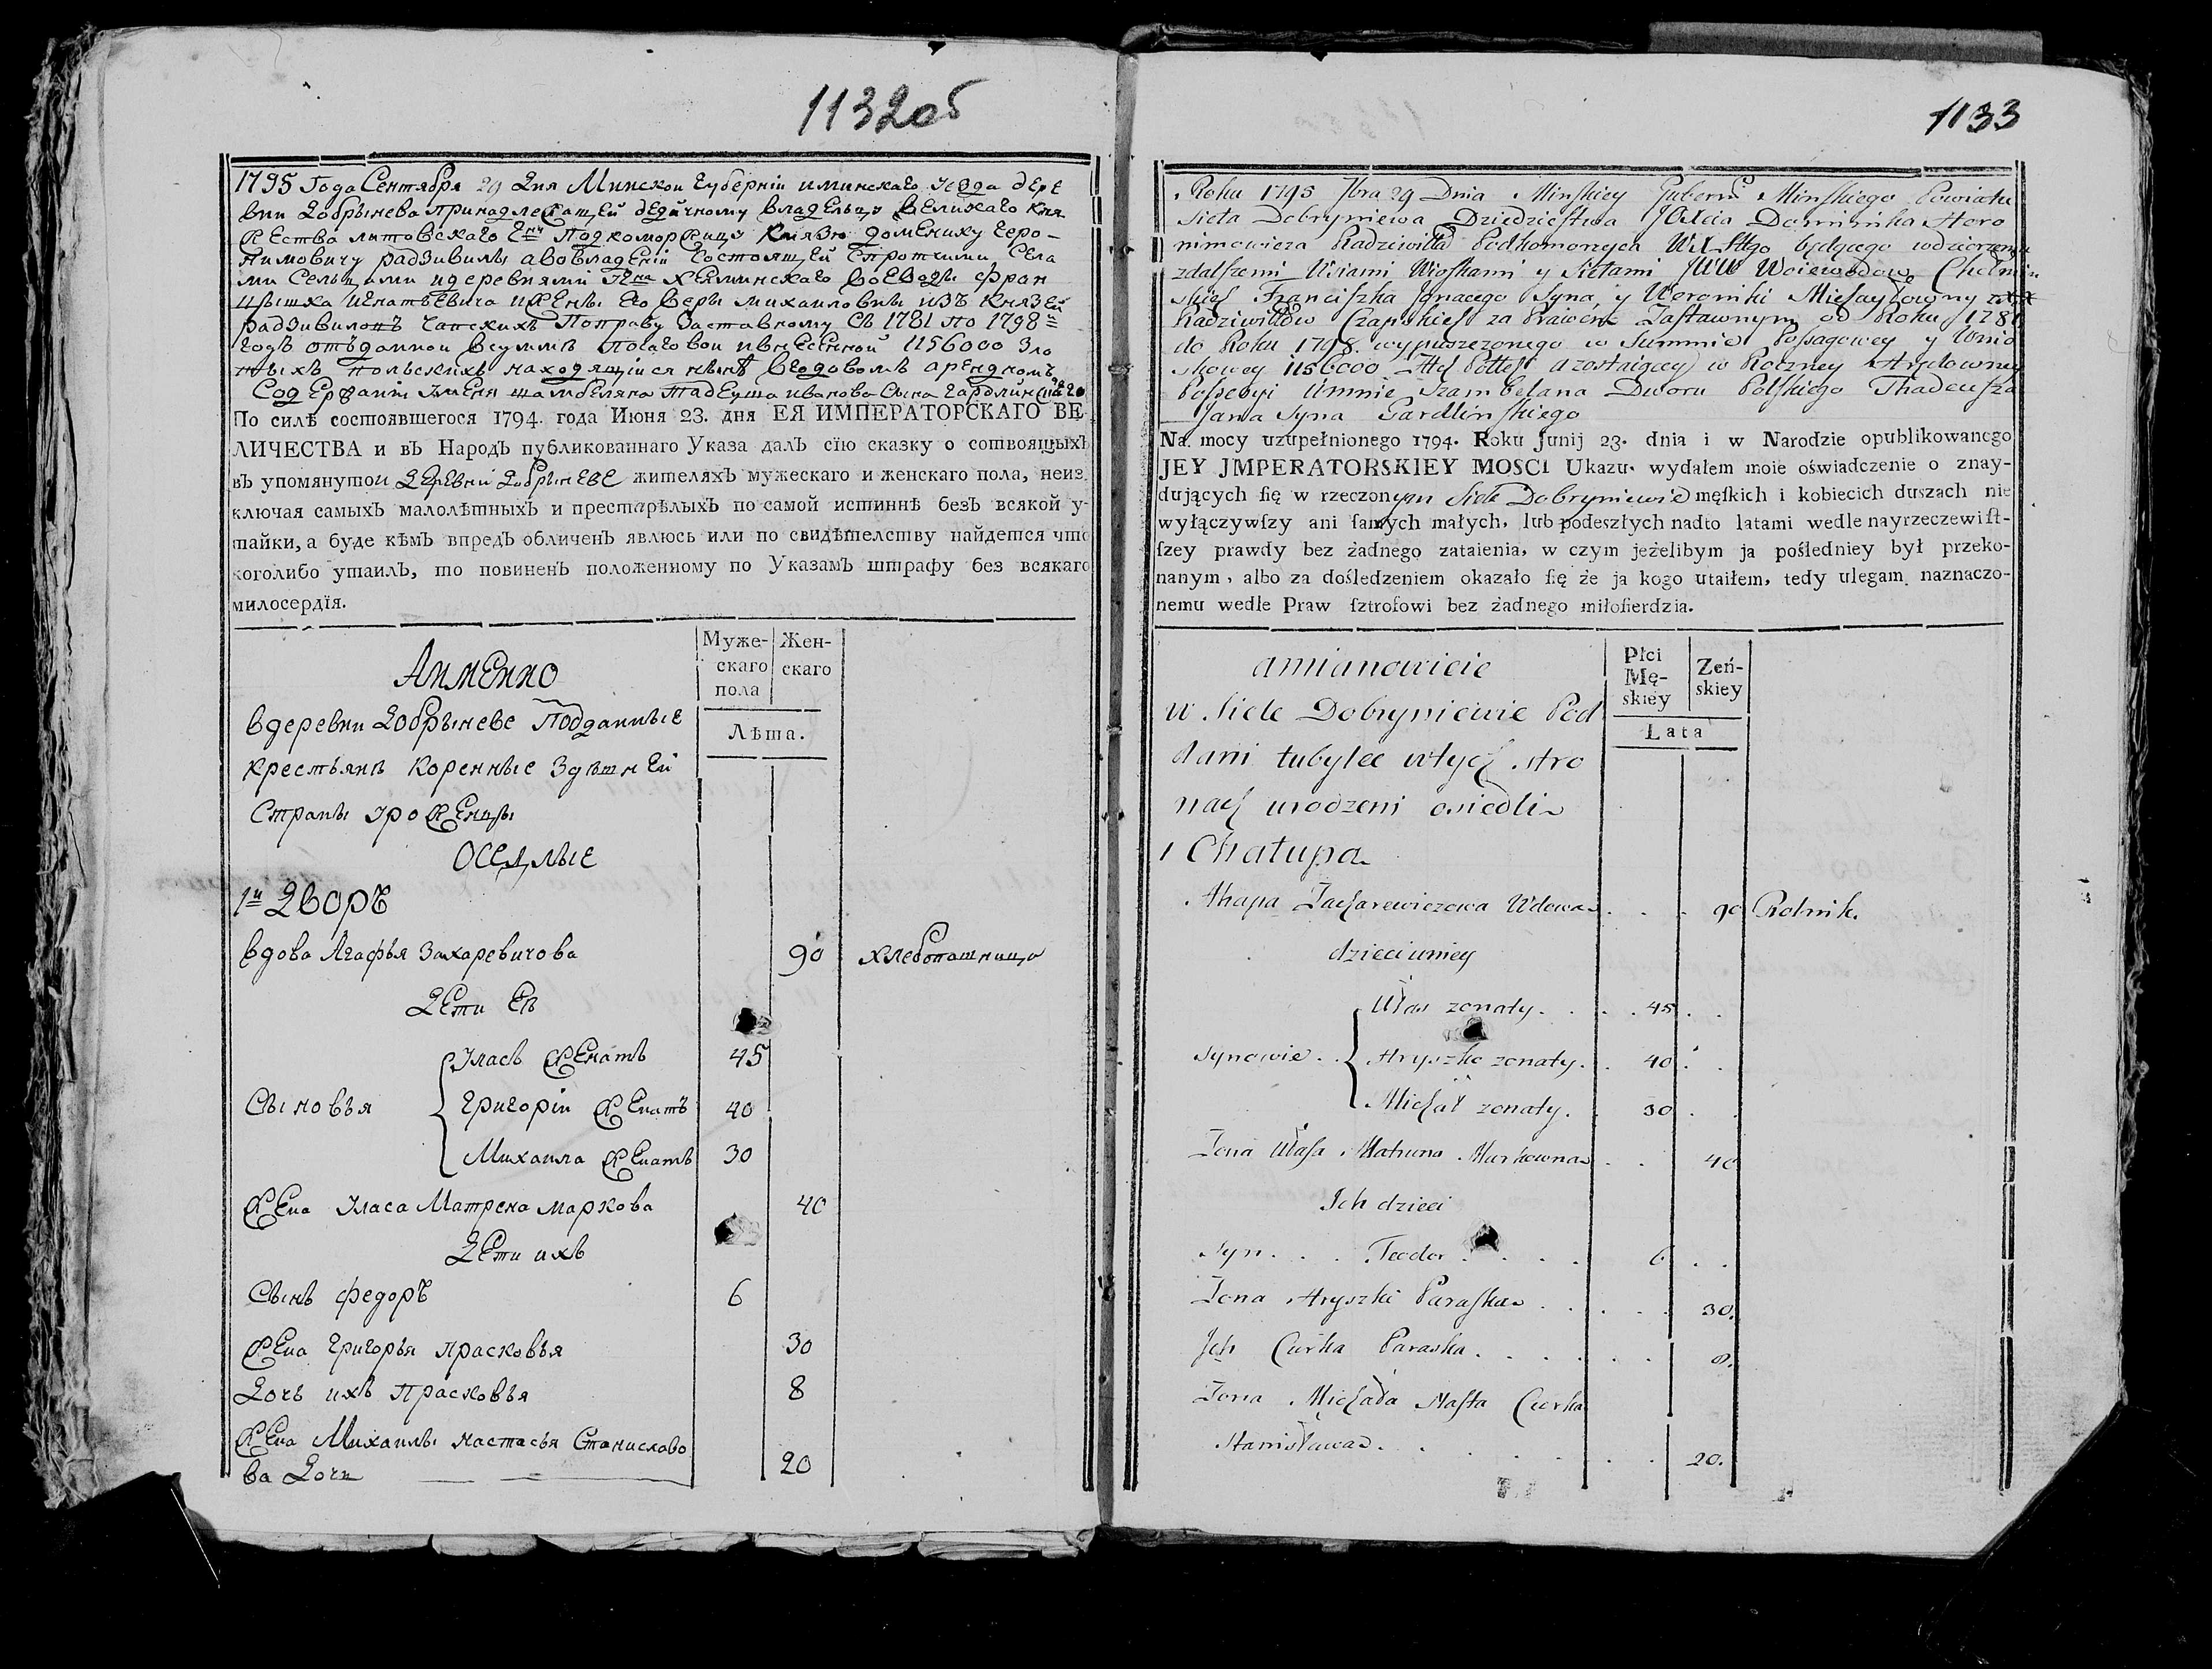 1132об
1795 Года Сентября 29 Дня Минской Губерніи и минскаго уезда дере
вни Добрынева принадлежащей дедичному владельцу великаго кня
жества литовскаго Гну Подкоморжицу Князю доменику Геро-
нимовичу радзивилы а во владеніи состоящей с протчими села
ми сельцами и деревнями Гена хелминскаго воеводы фран
цышка игнатьевича и жены его веры михаиловны изъ князей
радзивиловъ Чапскихъ По праву Заставному Съ 1781 по 1798й
годъ отъданной в сумме посаговой и внесенной 1156000 Зло
тыхъ польскихъ находящійся ныне в годовомъ арендномъ
Содержаніи Имѣня шамбеляна тадеуша иванова Сына гардлинскаго
По силѣ состоявшегося 1794. года Июня 23. дня ЕЯ ИМПЕРАТОРСКАГО ВЕ
ЛИЧЕСТВА и въ Народъ публикованнаго Указа далъ сїю сказку о сотвоящыхъ
въ упомянутой Деревни Добрыневе жителяхъ мужескаго и женскаго пола, неиз
ключая самыхъ малолѣтныхъ и престарѣлыхъ по самой истиннѣ безъ всякой у-
тайки, а буде кѣмъ впредъ обличенъ явлюсь или по свидѣтелству найдется что
коголибо утаилъ, то повиненъ положенному по Указамъ штрафу без всякаго
милосердїя.
Муже-скаго пола
Жен-скаго
Лѣта.
Аименно
в деревни Добрыневе Подданные
крестьяне коренные Здѣшней
Страны уроженцы
оседлые
1й Дворъ
вдова Агафья Захаревичова 90 хлебопашицу
Дети Ея
Сыновья
Уласъ женатъ 45
Григоріи женатъ 40
Михаила женатъ 30
Жена Уласа Матрена маркова 40
Дети ихъ
Сынъ федоръ 6
Жена григорья прасковья 30
Дочь ихъ Прасковья 8
Жена Михаилы настасья Станиславо
ва Дочь 20
1133
Roku 1795 7bra 29 Dnia Minskiey Guberni Minskiego Powiatu
Sieła Dobryniewa Dziedzictwa JOXcia Dominika Hero
nimowicza Radziwiłła Podkomorzyca WXLttgo będącego w dzierżeniu
z dalszemi Wsiami Wioskami y Siełami JWW Woiewodow Chełmin
skich Franciszka Jgnacego Syna y Weroniki Michayłowny z XX
Radziwiłłow Czapskich za Prawem Zastawnym od Roku 1781
do Roku 1798. wypuszczonego w Summie Possagowey y Wnio
skowey 1156000 Złł Polłch a zostaiącey w Roczney Arędowney
Possesyi Jmmnie Szambelana Dworu Polskiego Thadeusza
Jana Syna Gardlinskiego
Na mocy uzupełnionego 1794. Roku Junij 23. dnia i w Narodzie opublikowanego
JEY JMPERATORSKIEY MOSCI Ukazu, wydałem moie oświadczenie o znay-
dujących się w rzeczonym Siele Dobryniewie męſkich i kobiecich duszach nie
wyłączywſzy ani ſamych małych, lub podeszłych nadto latami wedle nayrzeczewiſt-
ſzey prawdy bez żadnego zataienia, w czym jeżelibym ja poſledniey był przeko-
nanym, albo za dośledzeniem okazało ſię że ja kogo utaiłem, tedy ulegam naznaczo-
nemu wedle Praw ſztrofowi bez żadnego miłoſierdzia.
Płci Mę-skiey
Zeń-skiey
Lata
amianowicie
w Siele Dobryniewie Pod
dani tubylce w tych stro
nach urodzeni osiedli
1 Chałupa
Ahapa Zacharewiczowa Wdowa . . . 90 Rolnik.
dzieci u niey
Synowie . .
Ułas zonaty. . . . 45 . .
Hryszko zonaty. . 40 . .
Michał zonaty. . 30 . .
Zona Ułasa Matruna Markowna . . 40
Ich dzieci
Syn. . . Teodor . . . . 6 . .
Zona Hryszki Paraska . . . . . 30.
Ich Curka Paraska. . . . . . . 8.
Zona Michała Nasta Curka
Stanisława. . . . . . . 20.